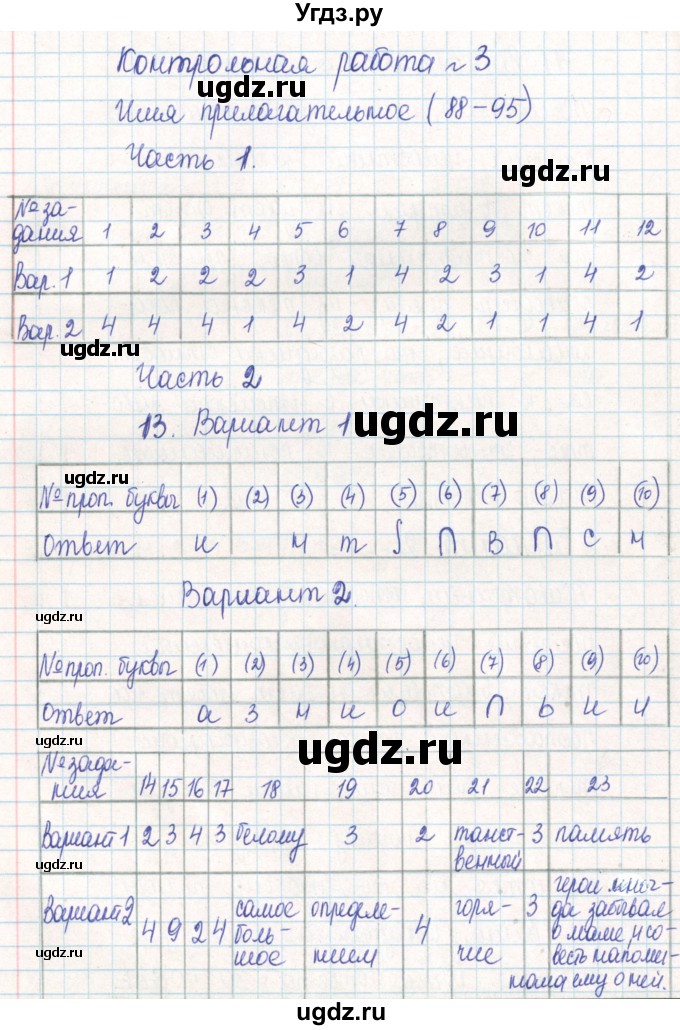 Угдз.ру
Контрольная работа № 3
Имя прилагательное (88-95)
Часть 1.
№ за-
дания 1 2 3 4 5 6 7 8 9 10 11 12
Вар. 1 1 2 2 2 3 1 4 2 3 1 4 2
Вар. 2 4 4 4 1 4 2 4 2 1 1 4 1
Часть 2
13. Вариант 1
№ проп. буквы (1) (2) (3) (4) (5) (6) (7) (8) (9) (10)
Ответ и н т П в П с н
Вариант 2.
№ проп. буквы (1) (2) (3) (4) (5) (6) (7) (8) (9) (10)
Ответ а з н и о и П ь и и
№ зада-
ния 14 15 16 17 18 19 20 21 22 23
Вариант 1 2 3 4 3 белому 3 2 танст-
венный 3 память
Вариант 2 4 9 2 4 самое
боль-
шое определе-
нием 4 горя-
чие 3 герой иног-
да забывал
о маме, и со-
весть напоми-
нала ему о ней.
ugdz.ru
ugdz.ru
ugdz.ru
ugdz.ru
ugdz.ru
ugdz.ru
ugdz.ru
ugdz.ru
ugdz.ru
ugdz.ru
ugdz.ru
ugdz.ru
ugdz.ru
ugdz.ru